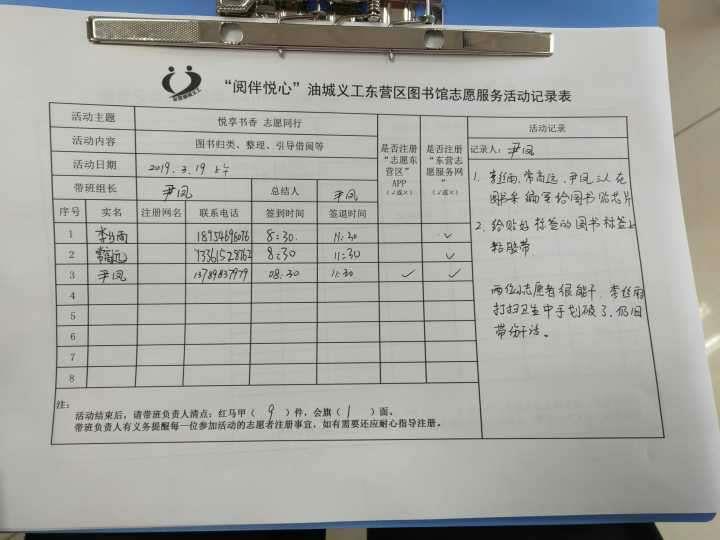 “阅伴悦心”油城义工东营区图书馆志愿服务活动记录表
活动主题 悦享书香 志愿同行
活动内容 图书归类、整理、引导借阅等
活动日期 2019.3.19 上午
带班组长 尹凤 总结人 尹凤
是否注册“志愿东营区”APP（√或×）
是否注册“东营志愿服务网”（√或×）
序号 实名 注册网名 联系电话 签到时间 签退时间
1 李丝雨 18954698076 8:30. 11:30 √
2 常高远 8:30 11:30 √
3 尹凤 13789837979 08:30 11:30 √ √
4
5
6
7
8
注：
活动结束后，请带班负责人清点：红马甲（ 9 ）件，会旗（ 1 ）面。
带班负责人有义务提醒每一位参加活动的志愿者注册事宜，如有需要还应耐心指导注册。
活动记录
记录人：尹凤
1. 李丝雨、常高远、尹凤三人在
图书采编室给图书贴芯片
2. 给贴好标签的图书标签上
粘胶带.
两位小志愿者很能干，李丝雨
打扫卫生中手划破了，仍旧
带伤干活。